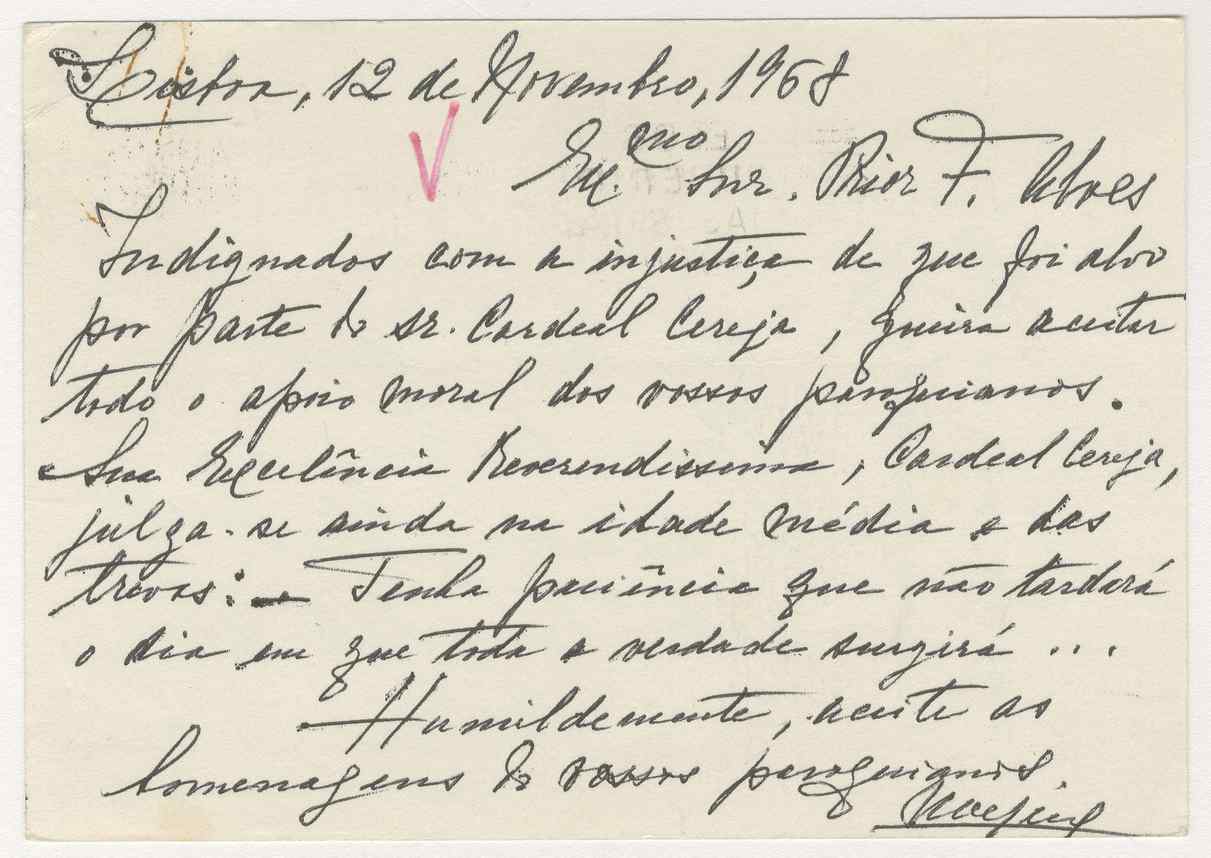 Lisboa, 12 de Novembro, 1968
Ex.mo Snr. Prior F. Alves
Indignados com a injustiça de que foi alvo
por parte do sr. Cardeal Cereja, queira aceitar
todo o apoio moral dos vossos paroquianos.
Sua Excelência Reverendissima, Cardeal Cereja,
julga-se ainda na idade média e das
trevas: — Tenha paciência que não tardará
o dia em que toda a verdade surgirá ...
Humildemente, aceite as
homenagens do vossos paroquianos.